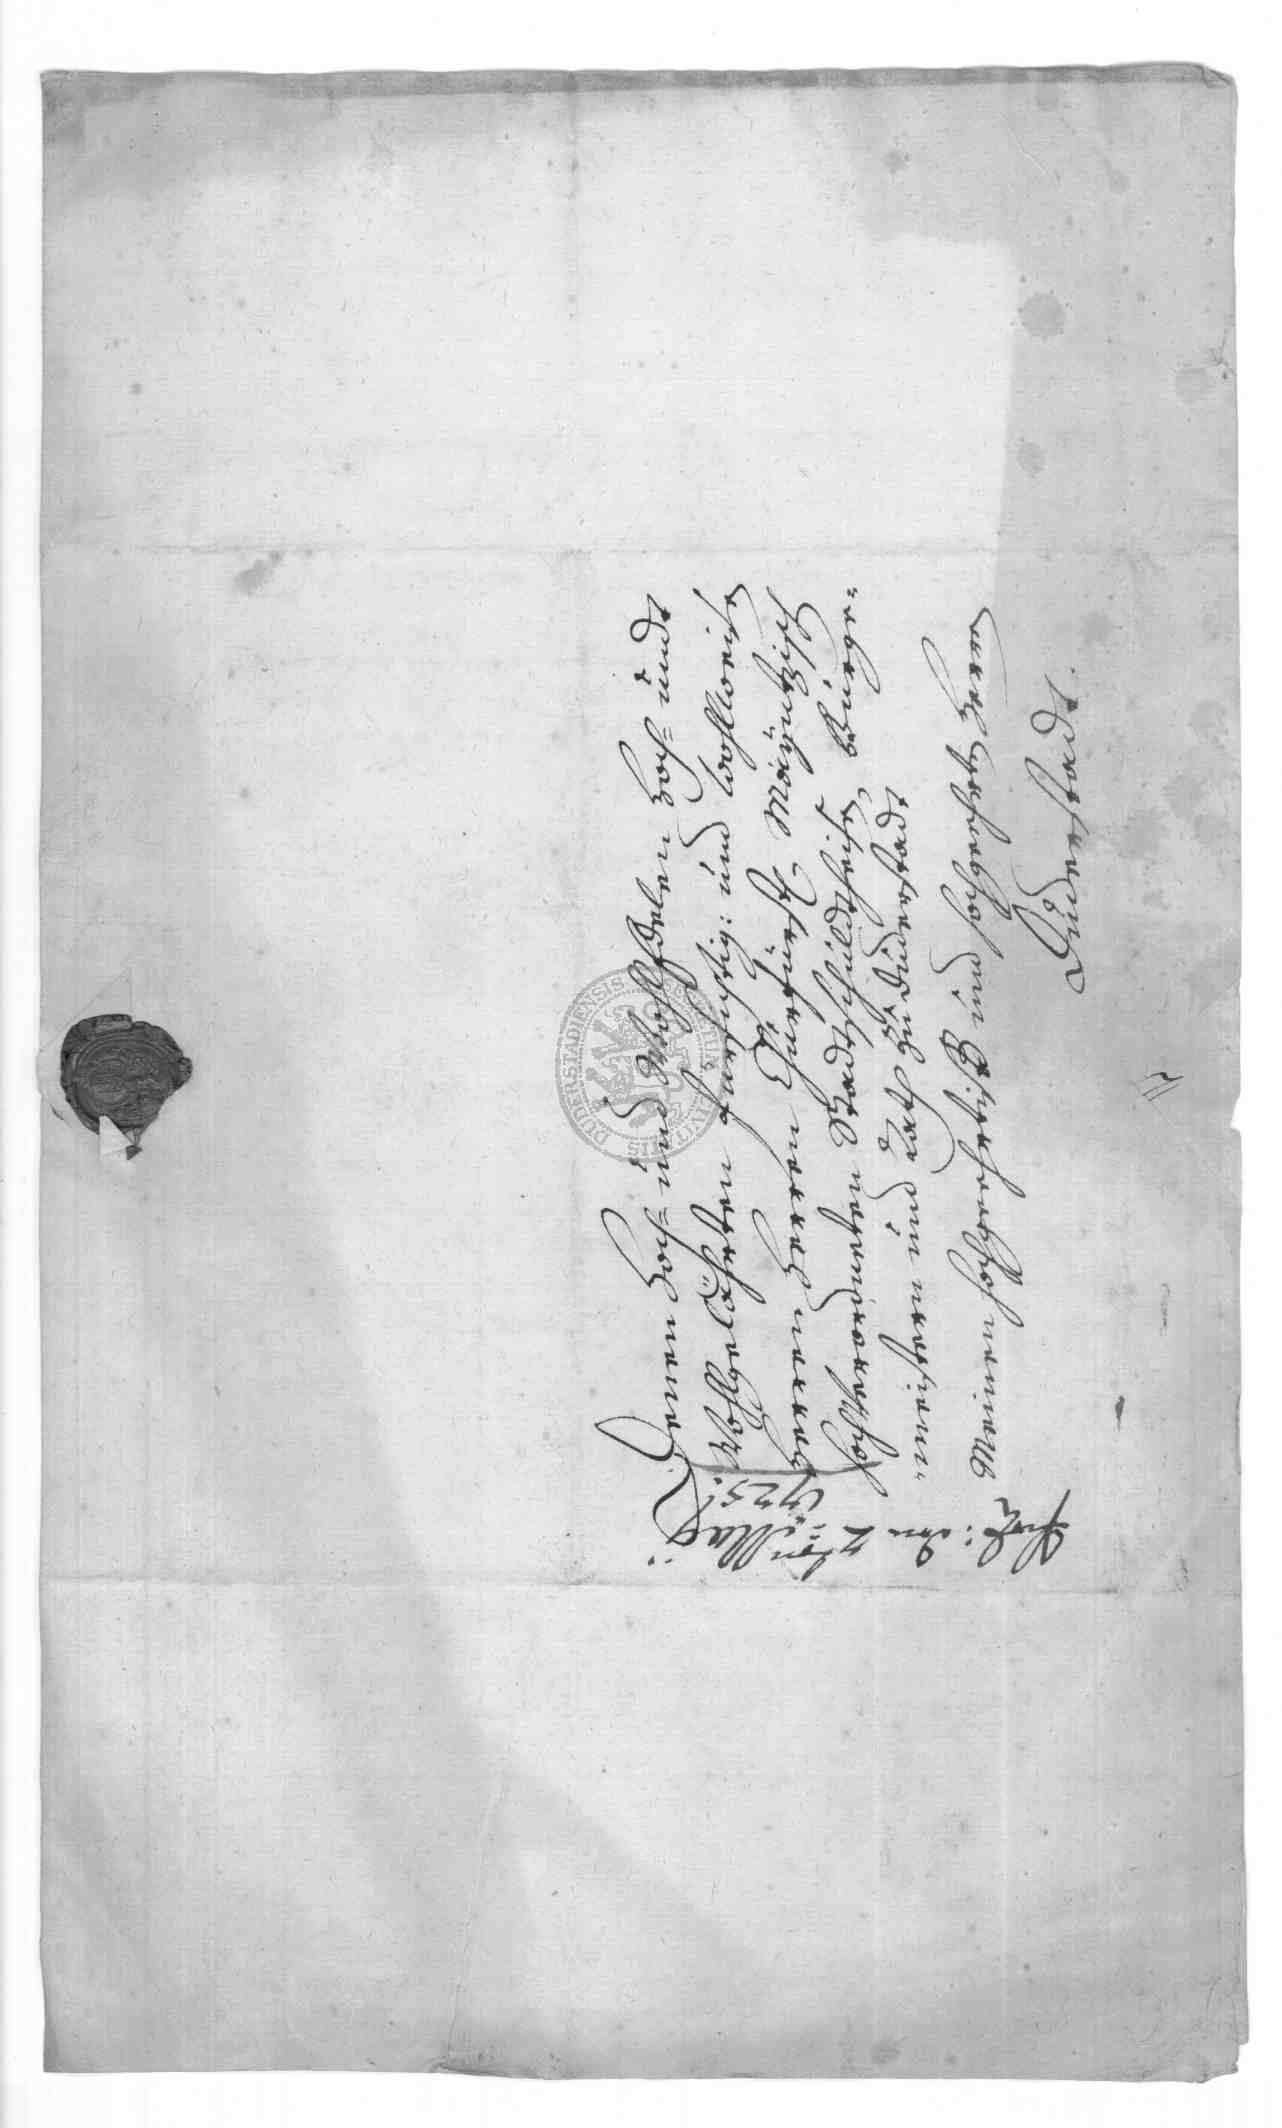 Denen Hoch- und WohlEdelen Hoch- undt
Wohlgelährten fürsichtig: und wohlweisen
Herren Herren Churfürstl. Mäyntzischen
hochverordneten Stadtschultheisen Bürge=
"meisteren und Rath zu Duderstadt
Meinen hochgeehrtisten und hochgeehrten Herren
Duderstadt.
den 7ten Maÿ
1725
SIG CIVITATIS DUDERSTADIENSIS